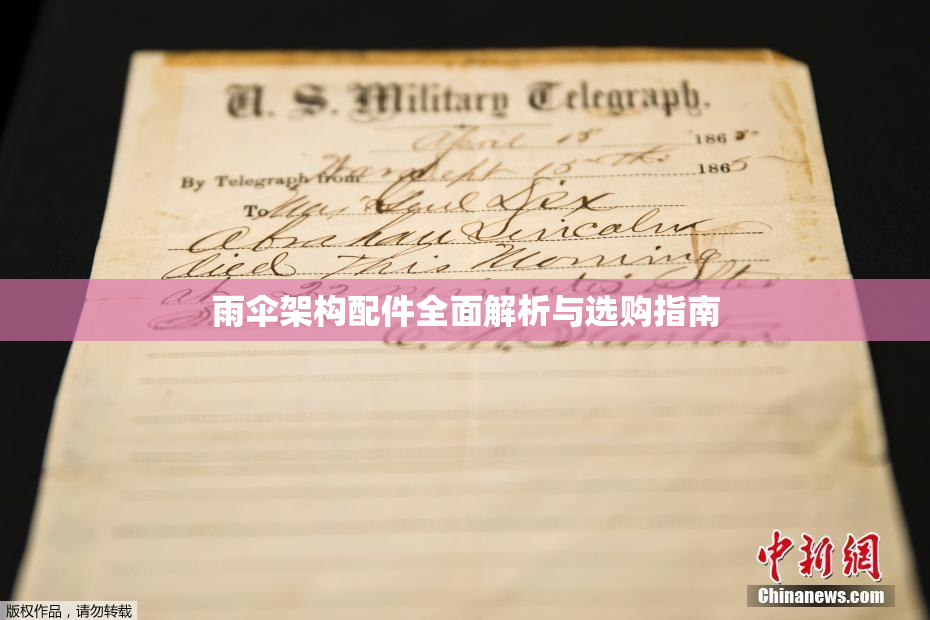 U. S. Military Telegraph.
April 15 1865
By Telegraph from War Dept 15th 1865
To Maj Genl Dix
Abraham Lincoln
died This Morning
at 22 minutes after
雨伞架构配件全面解析与选购指南
中新网
Chinanews.com
版权作品，请勿转载